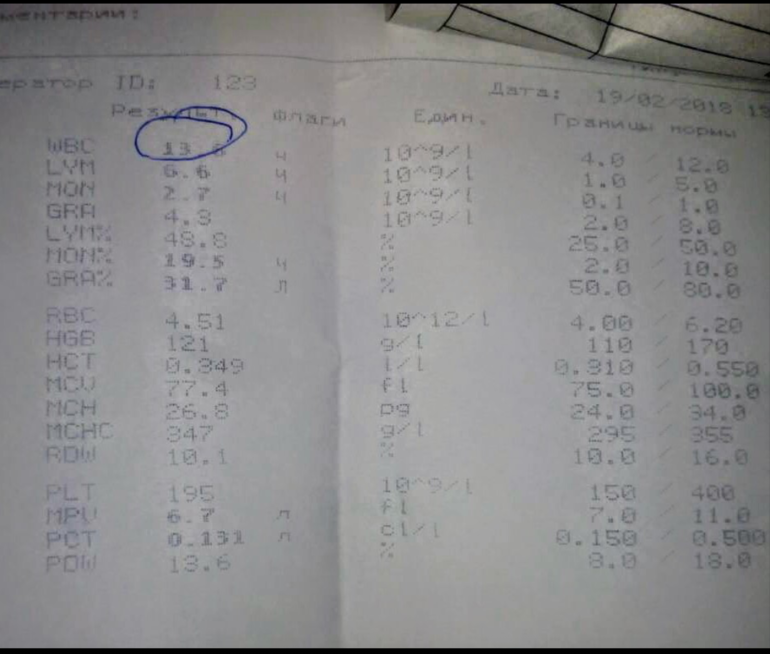 ментарии:
ератор ID: 123 Дата: 19/02/2018
Флаги Един. Границы нормы
WBC 13.6 ч 10^9/l 4.0 / 12.0
LYM 6.6 ч 10^9/l 1.0 / 5.0
MON 2.7 ч 10^9/l 0.1 / 1.0
GRA 4.3 10^9/l 2.0 / 8.0
LYM% 48.8 % 25.0 / 50.0
MON% 19.5 ч % 2.0 / 10.0
GRA% 31.7 л % 50.0 / 80.0
RBC 4.51 10^12/l 4.00 / 6.20
HGB 121 g/l 110 / 170
HCT 0.349 l/l 0.310 / 0.550
MCV 77.4 fl 75.0 / 100.0
MCH 26.8 pg 24.0 / 34.0
MCHC 347 g/l 295 / 355
RDW 10.1 % 10.0 / 16.0
PLT 195 10^9/l 150 / 400
MPV 6.7 л fl 7.0 / 11.0
PCT 0.131 л cl/l 0.150 / 0.500
PDW 13.6 % 8.0 / 18.0